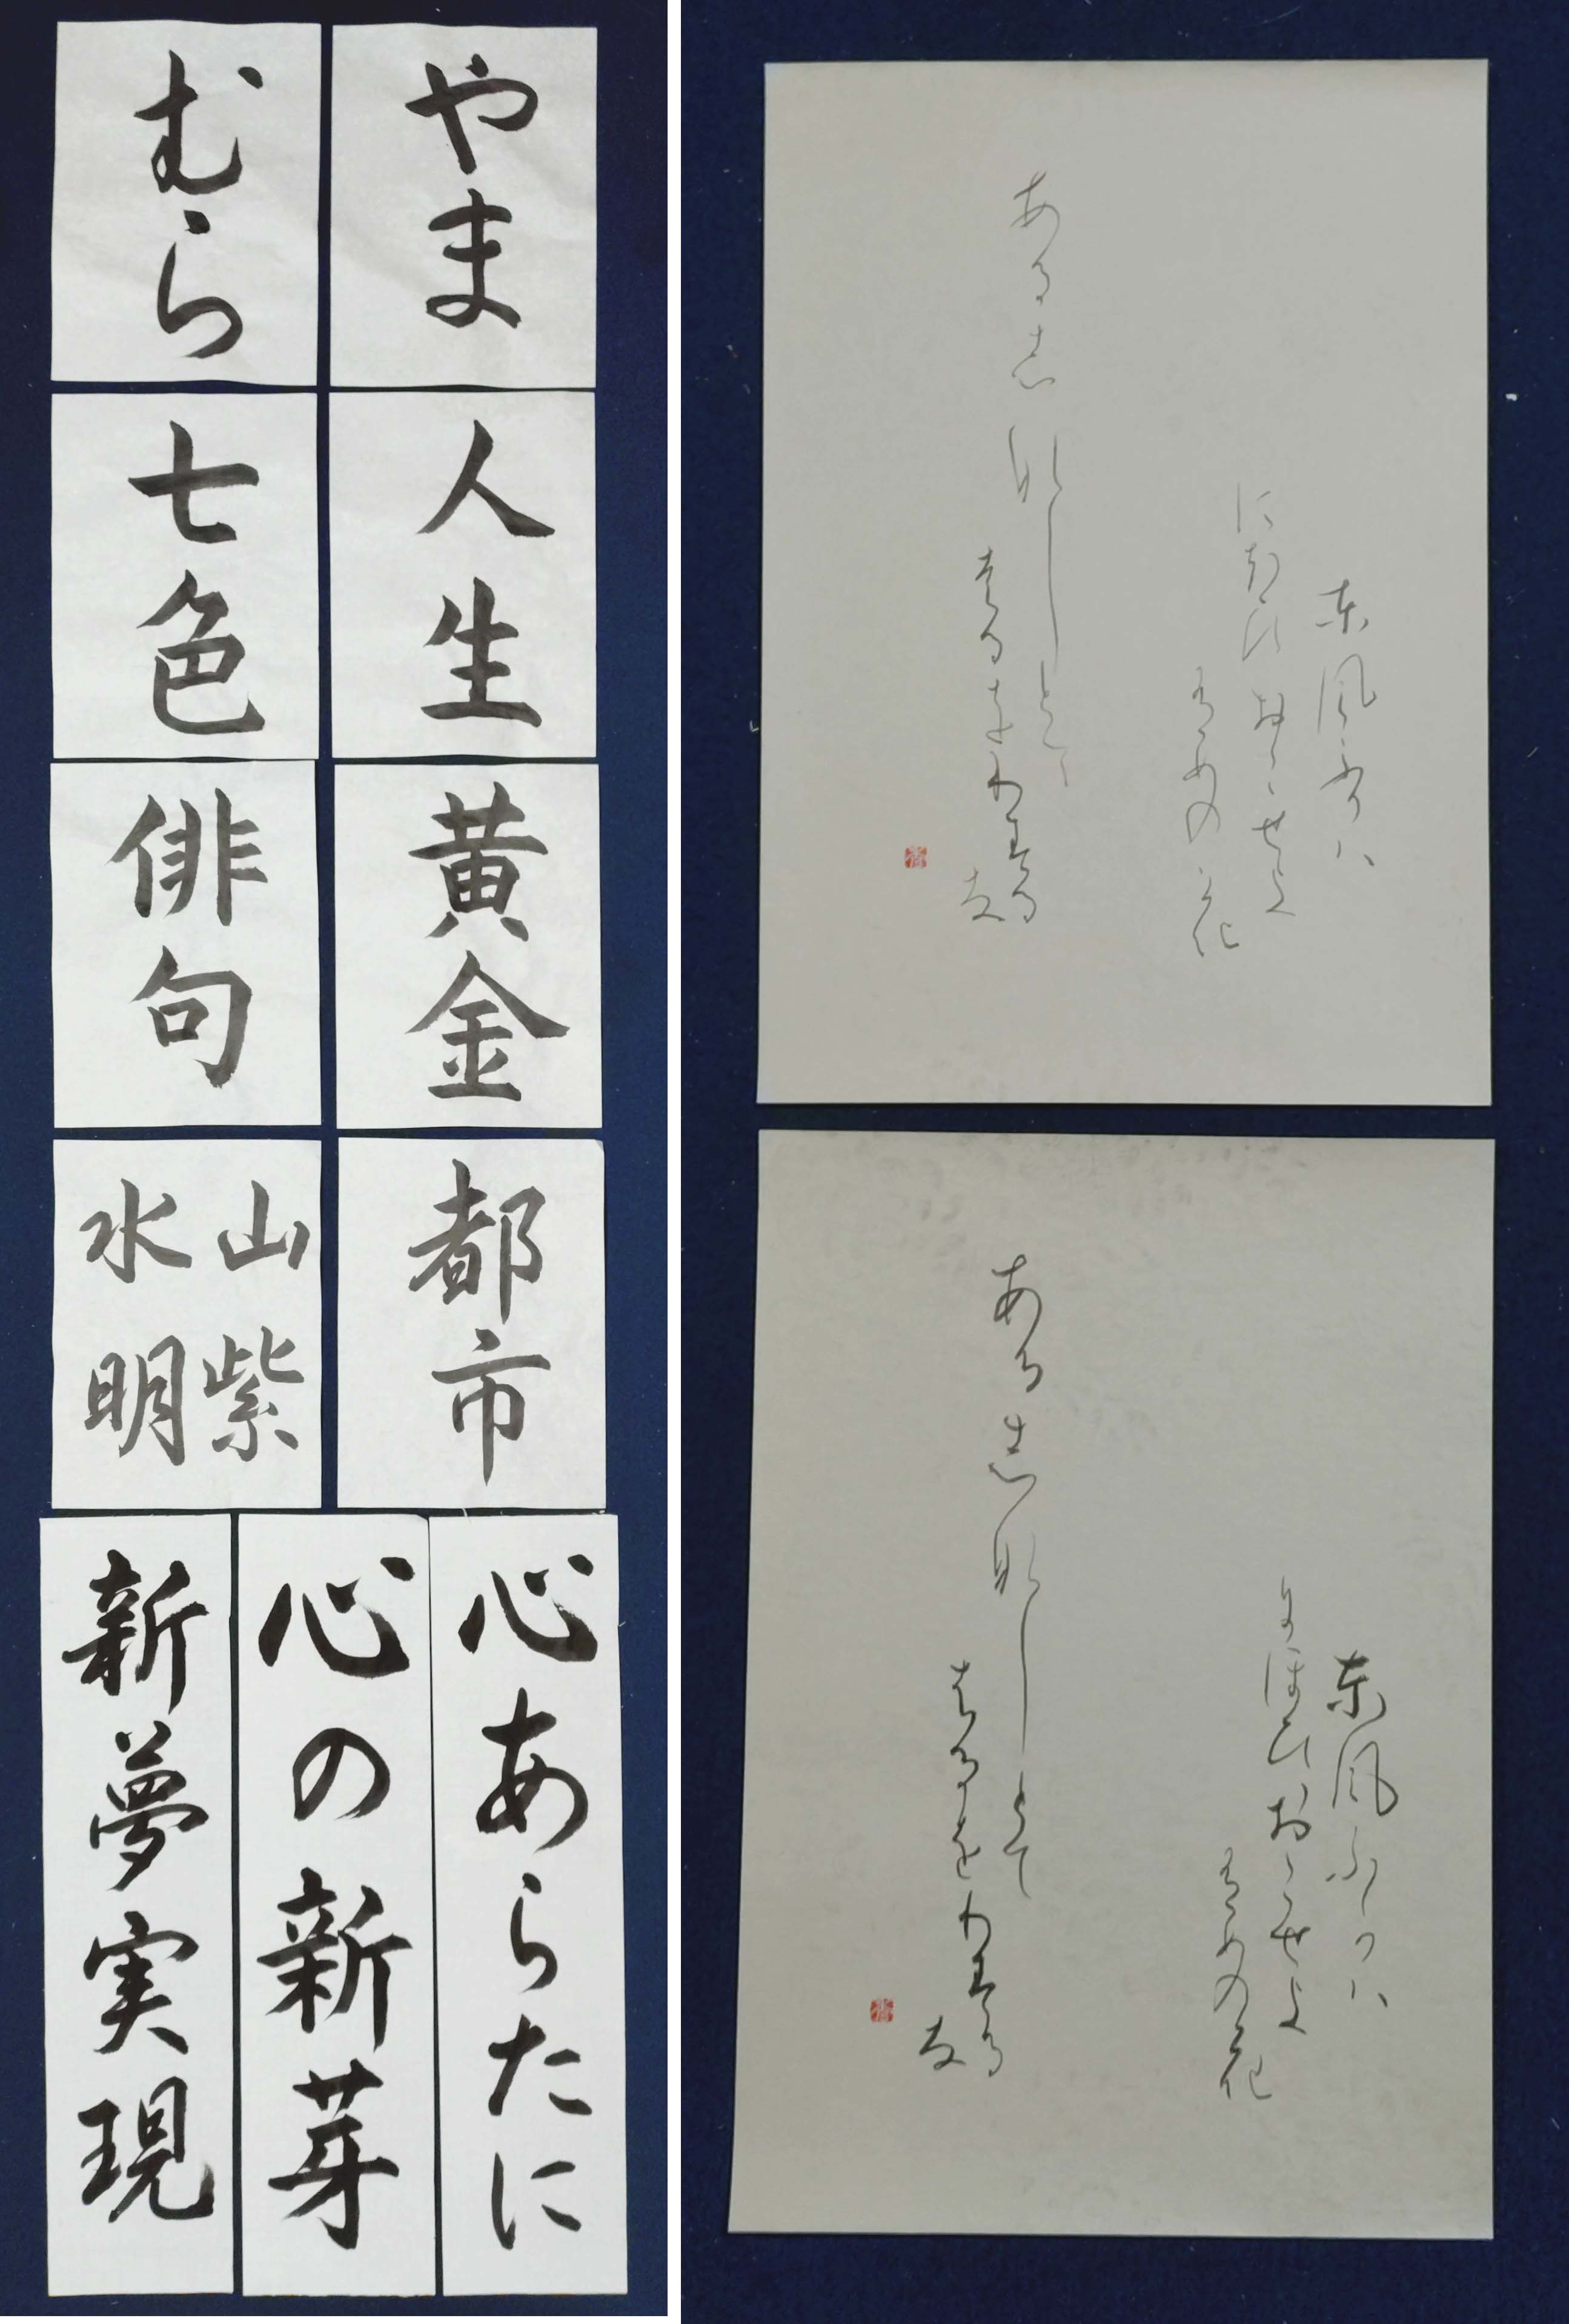 やま
むら
人生
七色
黄金
俳句
都市
山紫
水明
心あらたに
心の新芽
新夢実現
東風ふかは
にほひおこせよ
うめの花
あるしなしとて
はるをわする
な
東風ふかは
にほひおこせよ
うめの花
あるしなしとて
はるをわする
な